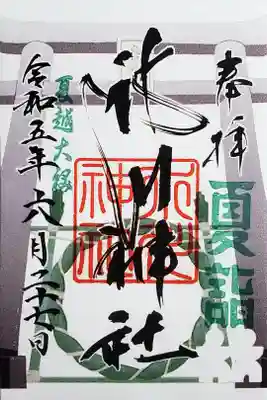 奉拝
夏詣
氷川神社
氷川
神社
夏越大祓
令和五年六月二十七日